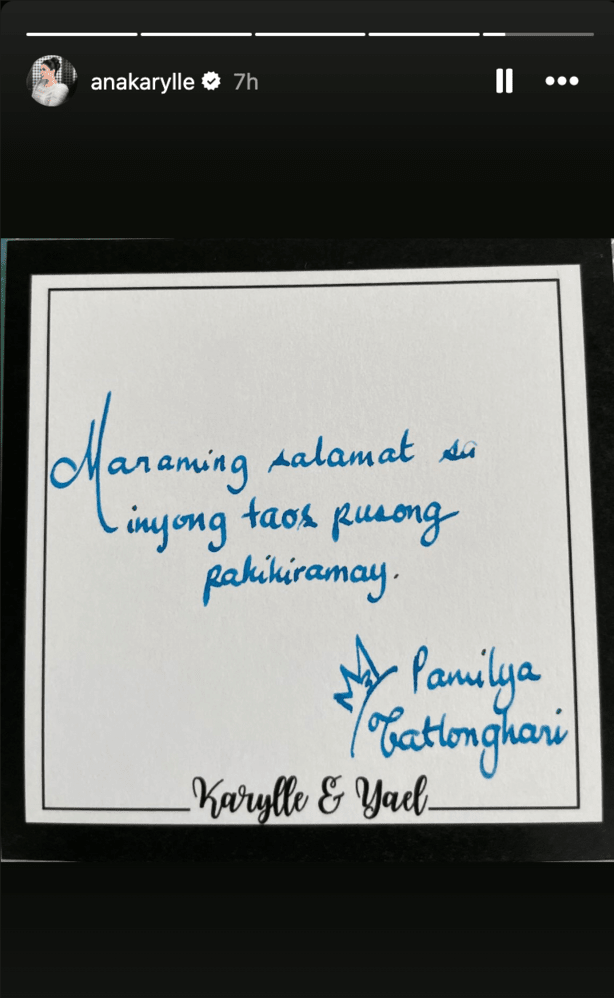 anakarylle 7h
Maraming salamat sa
inyong taos pusong
pakikiramay.
Pamilya
Tatlonghari
Karylle & Yael